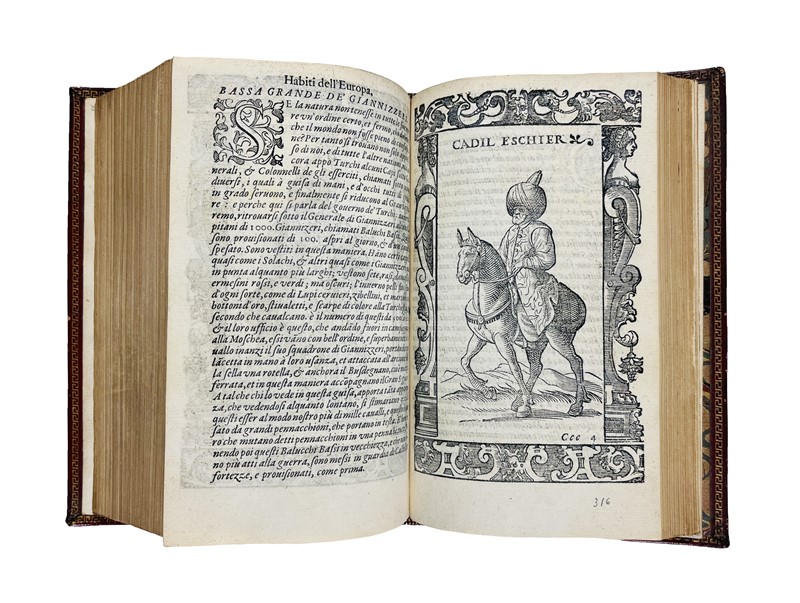 Habiti dell'Europa,
BASSA GRANDE DE' GIANNIZZERI
SE la natura non tenesse in tutte le
re vn'ordine certo, et fermo,
che il mondo non fusse pieno di
ne? Per tanto si trouano non solo
so di noi, e di tutte l'altre nationi,
cora appò Turchi alcuni Capi
nerali, & Colonnelli de gli esserciti, chiamati
diuersi, i quali à guisa di mani, e d'occhi tutti
in grado seruono, e finalmente si riducono al
re: e perche qui si parla del gouerno de' Turchi
remo, ritrouarsi sotto il Generale di Giannizzeri,
pitani di 1000. Giannizzeri, chiamati Baluchi Bassi,
sono prouisionati di 100. aspri al giorno, & d'un
spesato. Sono vestiti in questa maniera. Hano
quasi come i Solachi, & altri quasi come i Gianniz
in punta alquanto più larghi; vestono sete, rasi,
ermesini rossi, e verdi; ma oscuri; l'inuerno pelli
d'ogni sorte, come di Lupi ceruieri, zibellini, et mar
bottoni d'oro, stiualetti, e scarpe di colore alla Turch
secondo che caualcano. è il numero di questi da
& il loro ufficio è questo, che andādo fuori in cam
alla Moschea, essi vāno con bell'ordine, e superbamen
uallo inanzi il suo squadrone di Giannizzeri, portan
lācetta in mano à loro usanza, et attaccata all'
la sella vna rotella, & anchora il Busdegnano, cui
ferrata, et in questa maniera accōpagnano il Gran
A tal che chi lo vede in questa guisa, apporta
za, che vedendosi alquanto lontano, si stimarian
questi esser al modo nostro più di mille caualli, e
sato da grandi pennacchioni, che portano in testa.
ro che mutano detti pennacchioni in vna penna
nendo poi questi Balucchi Bassi in vecchiezza, e
no più atti alla guerra, sono messi in guardia di
fortezze, e prouisionati, come prima.
CADIL ESCHIER
Ccc 4
316